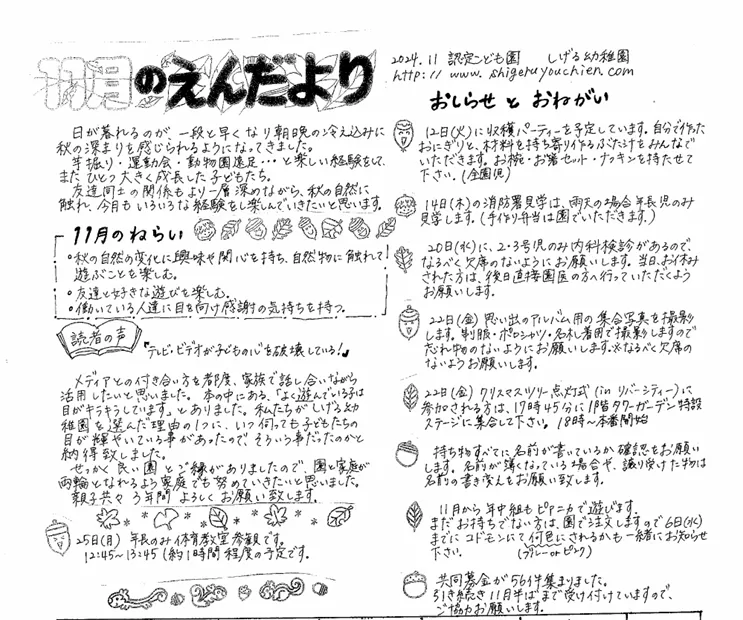 11月のえんだより
2024.11 認定こども園 しげる幼稚園
http://www.shigeruyouchien.com
日が暮れるのが、一段と早くなり朝晩の冷え込みに
秋の深まりを感じられるようになってきました。
芋掘り・運動会・動物園遠足・・・と楽しい経験をして、
またひとつ大きく成長した子どもたち。
友達同士の関係もより一層深めながら、秋の自然に
触れ、今月もいろいろな経験をし楽しんでいきたいと思います。
11月のねらい
・秋の自然の変化に興味や関心を持ち、自然物に触れて
遊ぶことを楽しむ。
・友達と好きな遊びを楽しむ。
・働いている人達に目を向け感謝の気持ちを持つ。
読者の声
「テレビ・ビデオが子どもの心を破壊している!」
メディアとの付き合い方を都度、家族で話し合いながら
活用したいと思いました。本の中にある、「よく遊んでいる子は
目がキラキラしています。」とありました。私たちがしげる幼
稚園を選んだ理由の1つに、いつ伺っても子どもたちの
目が輝やいている事があったので、そういう事だったのかと
納得致しました。
せっかく良い園とご縁がありましたので、園と家庭が
両輪となれるよう家庭でも努めていきたいと思いました。
親子共々3年間よろしくお願い致します。
25日(月) 年長のみ体育教室参観です。
12:45~13:45 (約1時間程度の予定です。
おしらせとおねがい
12日(火)に収穫パーティーを予定しています。自分で作った
おにぎりと、材料を持ち寄り作るぶた汁をみんなで
いただきます。お椀・お箸セット・ナフキンを持たせて
下さい。(全園児)
14日(木)の消防署見学は、雨天の場合年長児のみ
見学します。(手作り弁当は園でいただきます。)
20日(水)に、2・3号児のみ内科検診があるので、
なるべく欠席のないようにお願いします。当日、お休み
された方は、後日直接園医の方へ行っていただくよう
お願いします。
22日(金) 思い出のアルバム用の集合写真を撮影
します。制服・ポロシャツ・名札着用で撮影しますので
忘れ物のないようにお願いします。※なるべく欠席の
ないようお願いします。
22日(金) クリスマスツリー点灯式 (in リバーシティー)に
参加される方は、17時45分に1階タワーガーデン特設
ステージに集合して下さい。18時~本番開始
持ち物すべてに名前が書いているか確認をお願い
します。名前が薄くなっている場合や、譲り受けた物は
名前の書き変えをお願い致します。
11月から年中組もピアニカで遊びます。
まだお持ちでない方は、園で注文しますので6日(水)
までにコドモンにて何色にされるかも一緒にお知らせ
下さい。 (ブルーorピンク)
共同募金が56件集まりました。
引き続き11月半ばまで受け付けていますので、
ご協力お願いします。